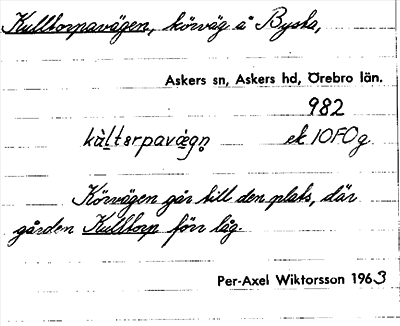 Kulltorpavägen, körväg å Bysta,
Askers sn, Askers hd, Örebro län.
982
kàltərpavä̀gn̥ ek 10F0g.
Körvägen går till den plats, där
gården Kulltorp förr låg.
Per-Axel Wiktorsson 1963